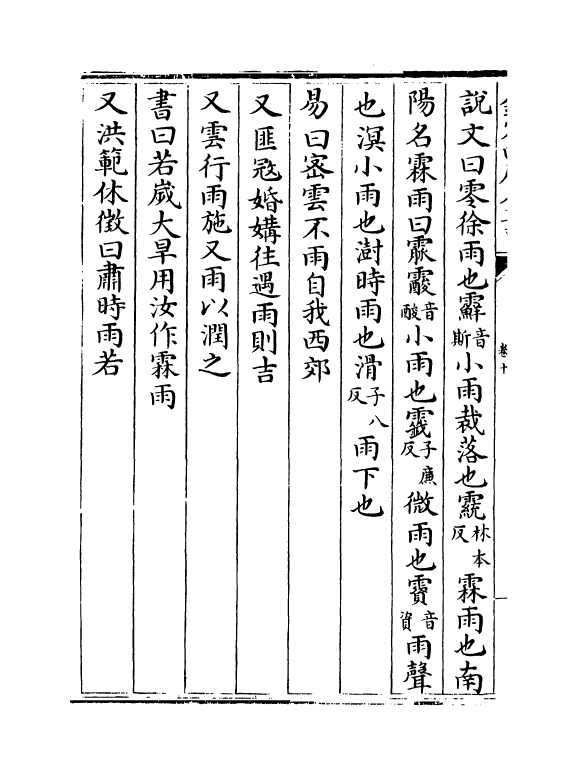 說文曰零徐雨也䨘音斯小雨裁落也林本反霖雨也南
陽名霖雨曰䨴䨙音酸小雨也䨛子廉反微雨也音資雨聲
也溟小雨也澍時雨也滑子八反雨下也
易曰密雲不雨自我西郊
又匪冦婚媾往遇雨則吉
又雲行雨施又雨以潤之
書曰若歲大旱用汝作霖雨
又洪範休徵曰肅時雨若
卷十